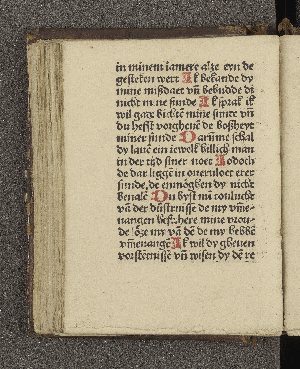 in minem iamere alze eyn de
gesteken wert Ik bekande dy
mine mißdaet vn̄ bebudde di
nicht mine sunde Ik sprak ik
wil gaze bichtē mine sunde vn̄
du hefft vorgheuē de boßheyt
miner sunde Darūme schal
dy lauē ein iewelk billich man
in der tijd siner noet Iodoch
de dar liggē in oueruloet erer
sunde, de enmogben dy nicht
benalē Du byst mi toulucht
vā der düsternisse de my vme-
uangen heft, here mine vrou-
de löze my vā dē de my hebbē
vmeuangē Ik wil dy gheuen
vorstentnisse vn̄ wisen dy dē